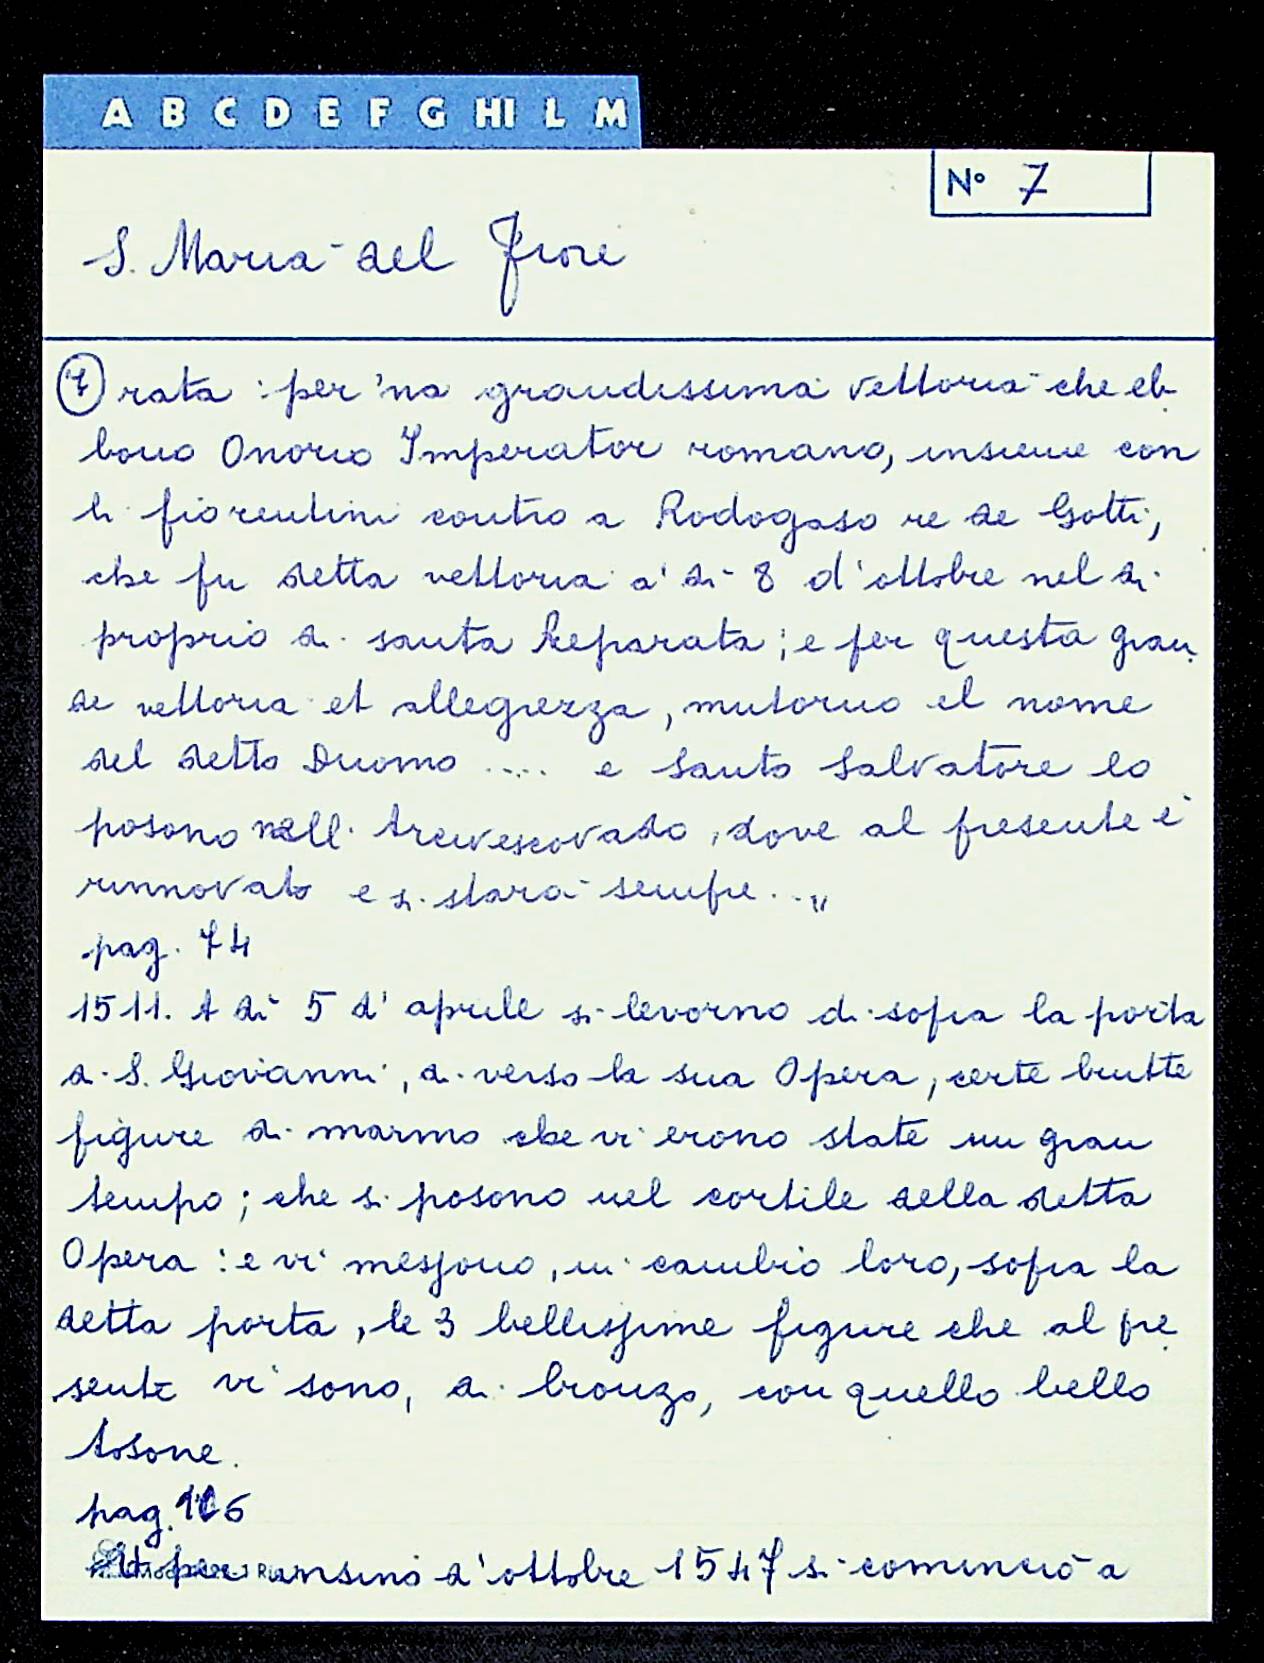 A B C D E F G HI L M
N° 7
S. Maria del Fiore
7 rata : per 'na grandissima vettoria che eb
bono Onorio Imperator romano, insieme con
li fiorentini contro a Rodogaso re de Gotti,
che fu detta vettoria a' dì 8 d'ottobre nel dì
proprio di santa Reparata; e per questa gran
de vettoria et allegrezza, mutorno el nome
del detto Duomo .... e Santo Salvatore lo
posono nell' Arcivescovado, dove al presente è
rinnovato e si starà sempre...„
pag. 74
1511. A dì 5 d'aprile si levorno di sopra la porta
di S. Giovanni, di verso la sua Opera, certe brutte
figure di marmo che vi erono state un gran
tempo; che si posono nel cortile della detta
Opera : e vi messono, in cambio loro, sopra la
detta porta, le 3 bellissime figure che al pre
sente vi sono, di bronzo, con quello bello
tosone.
pag.
per insino d'ottobre 1547 si cominciò a